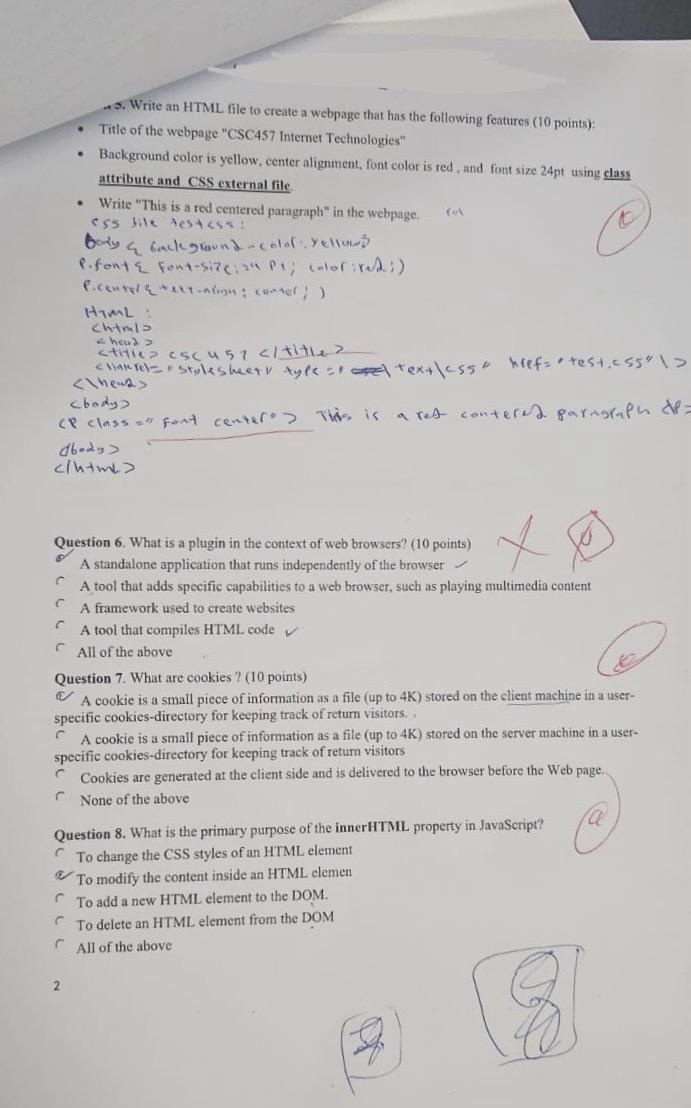 5. Write an HTML file to create a webpage that has the following features (10 points):
• Title of the webpage "CSC457 Internet Technologies"
• Background color is yellow, center alignment, font color is red , and font size 24pt using class
attribute and CSS external file.
• Write "This is a red centered paragraph" in the webpage.
css file test css :
body { background-color: yellow}
P.font { font-size: 24 Pt; color: red; }
P.center { text-align: center; }
HTML :
<html>
<head>
<title> CSC 457 </title>
<link rel="stylesheet" type=" text\css" href="test.css" \>
<\head>
<body>
<P class="font center"> This is a red centered paragraph
</html>
Question 6. What is a plugin in the context of web browsers? (10 points)
A standalone application that runs independently of the browser
A tool that adds specific capabilities to a web browser, such as playing multimedia content
A framework used to create websites
A tool that compiles HTML code
All of the above
Question 7. What are cookies ? (10 points)
A cookie is a small piece of information as a file (up to 4K) stored on the client machine in a user-
specific cookies-directory for keeping track of return visitors. .
A cookie is a small piece of information as a file (up to 4K) stored on the server machine in a user-
specific cookies-directory for keeping track of return visitors
Cookies are generated at the client side and is delivered to the browser before the Web page.
None of the above
Question 8. What is the primary purpose of the innerHTML property in JavaScript?
To change the CSS styles of an HTML element
To modify the content inside an HTML elemen
To add a new HTML element to the DOM.
To delete an HTML element from the DOM
All of the above
2